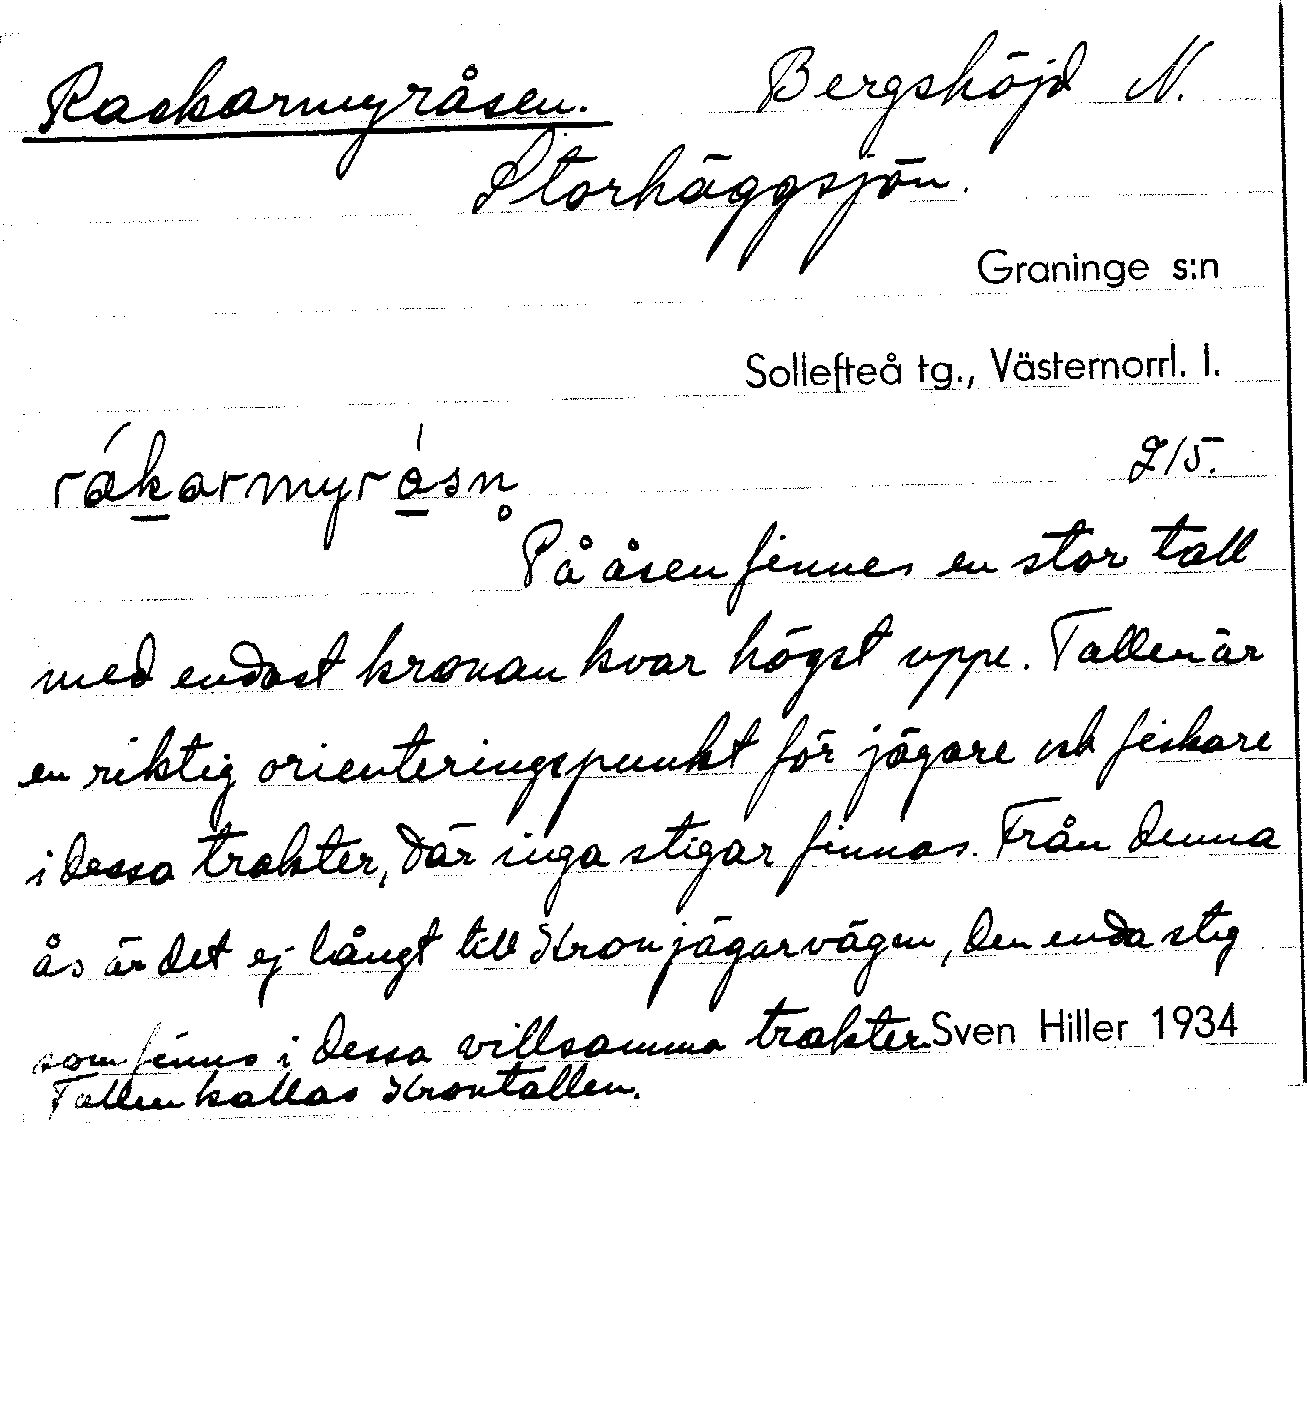 Raskarmyråsen. Bergshöjd N.
Storhäggsjön.
Graninge s:n
Sollefteå tg., Västernorrl. l.
rákarmyråsn̥
215.
På åsen finnes en stor tall
med endast kronan kvar högst uppe. Tallen är
en riktig orienteringspunkt för jägare och fiskare
i dessa trakter, där inga stigar finnas. Från denna
ås är det ej långt till Kronjägarvägen, den enda stig
som finns i dessa villsamma trakter Sven Hiller 1934
Tallen kallas Krontallen.